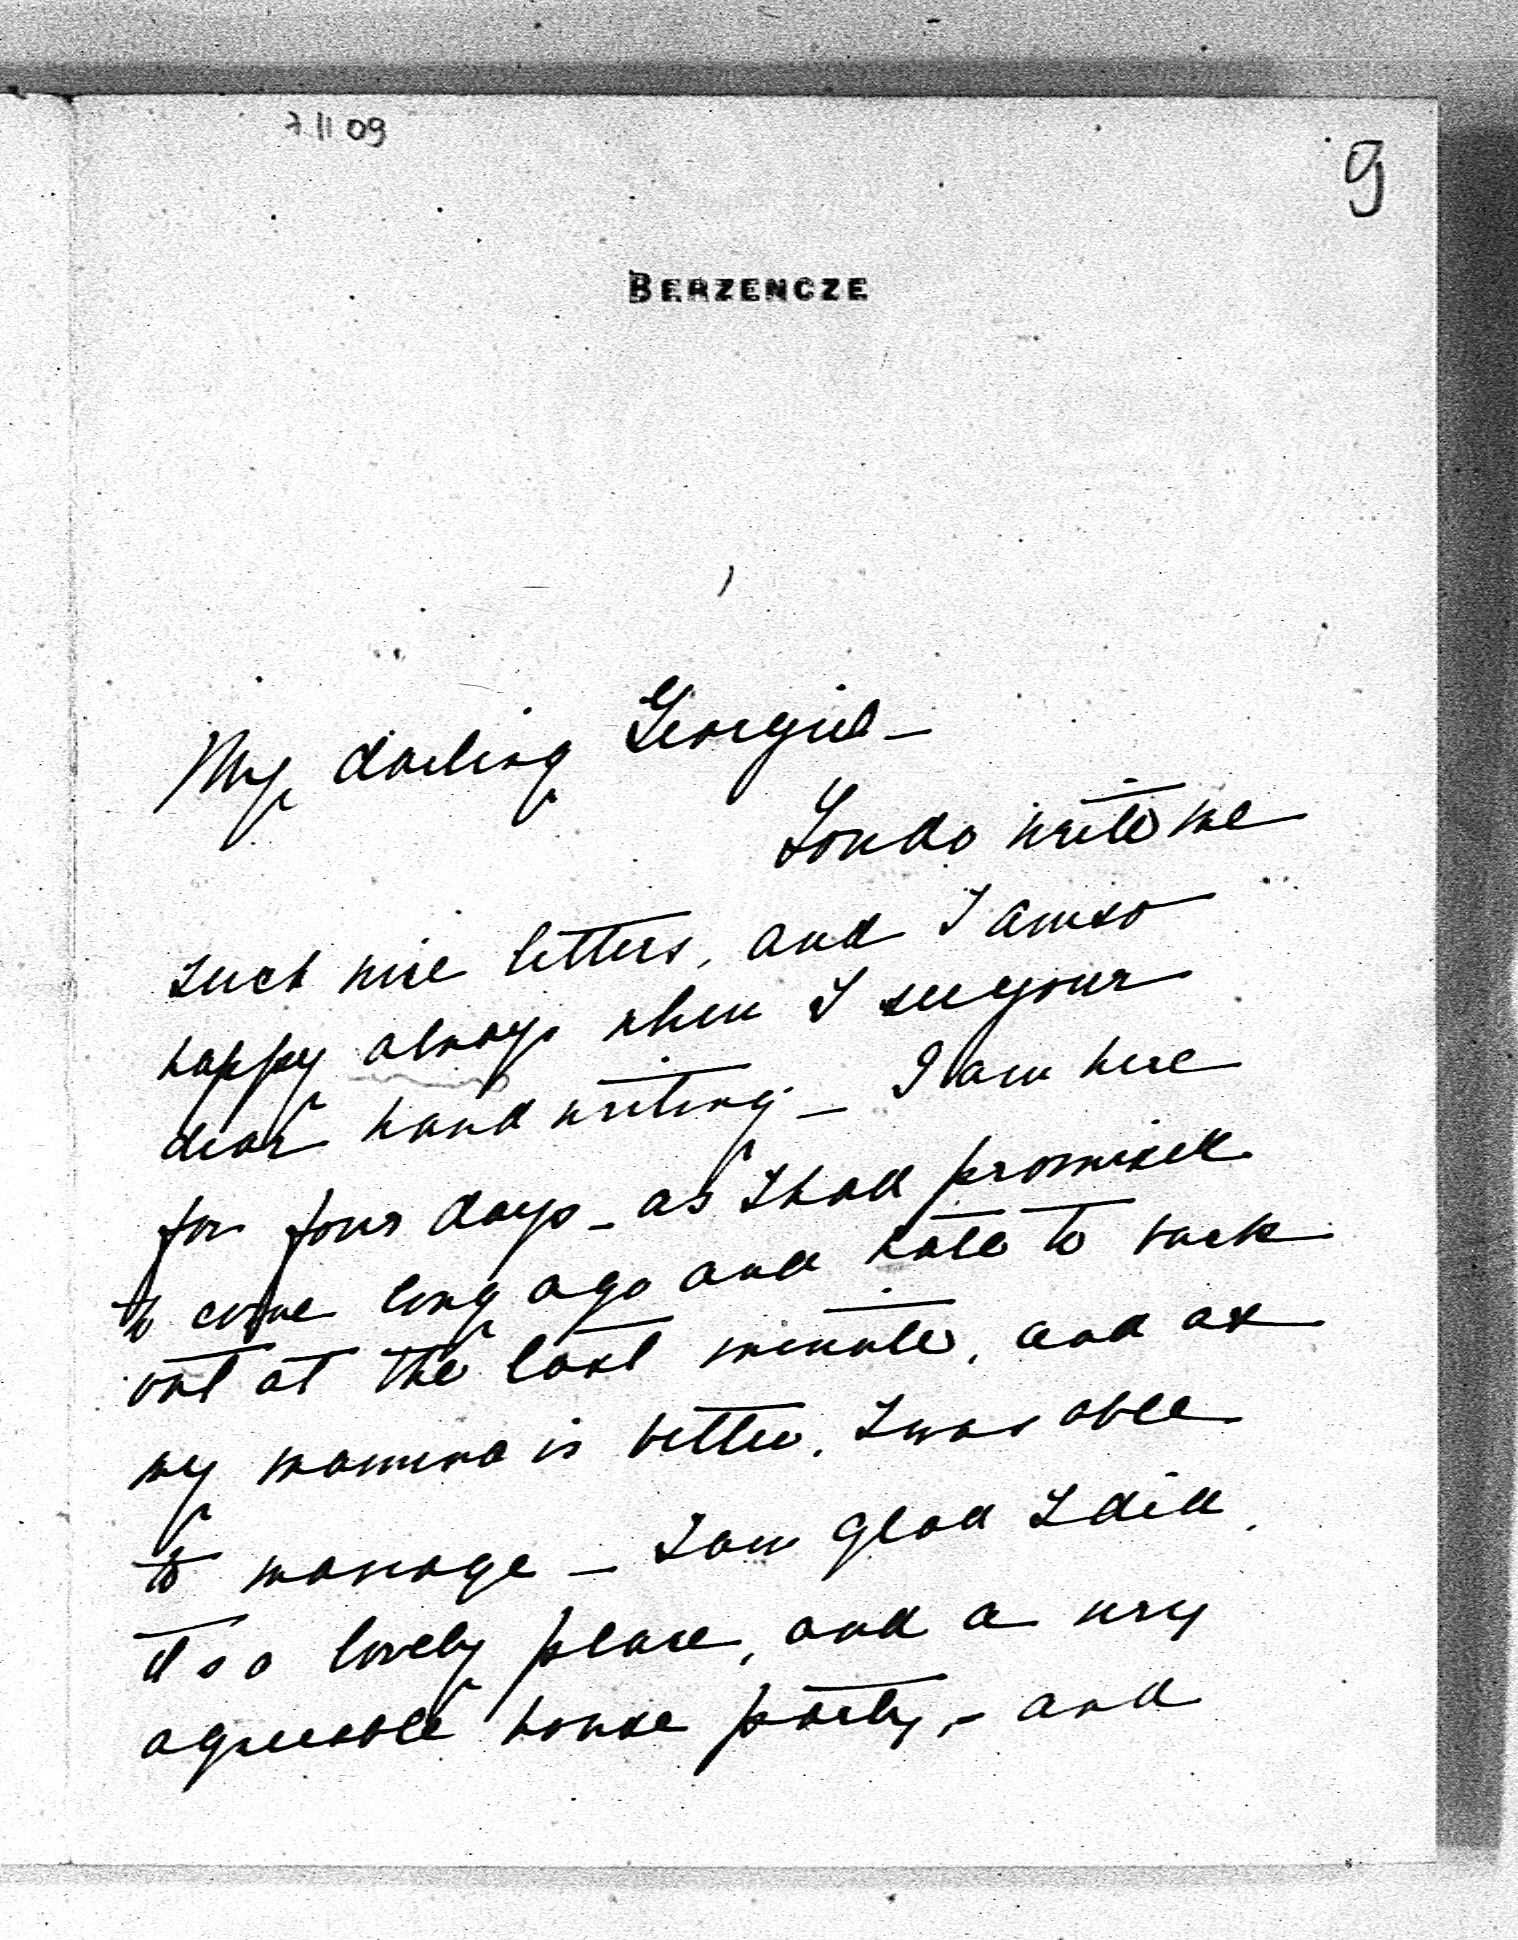 7.11 09
9
BERZENCZE
My darling Georgie –
You do write me
such nice letters, and I am so
happy always when I see your
dear hand writing – I am here
for four days – as I had promised
to come long ago and hate to back
out at the last minute, and as
my mamma is better, I was able
to manage – I am glad I did,
it's a lovely place, and a very
agreeable house party, – and